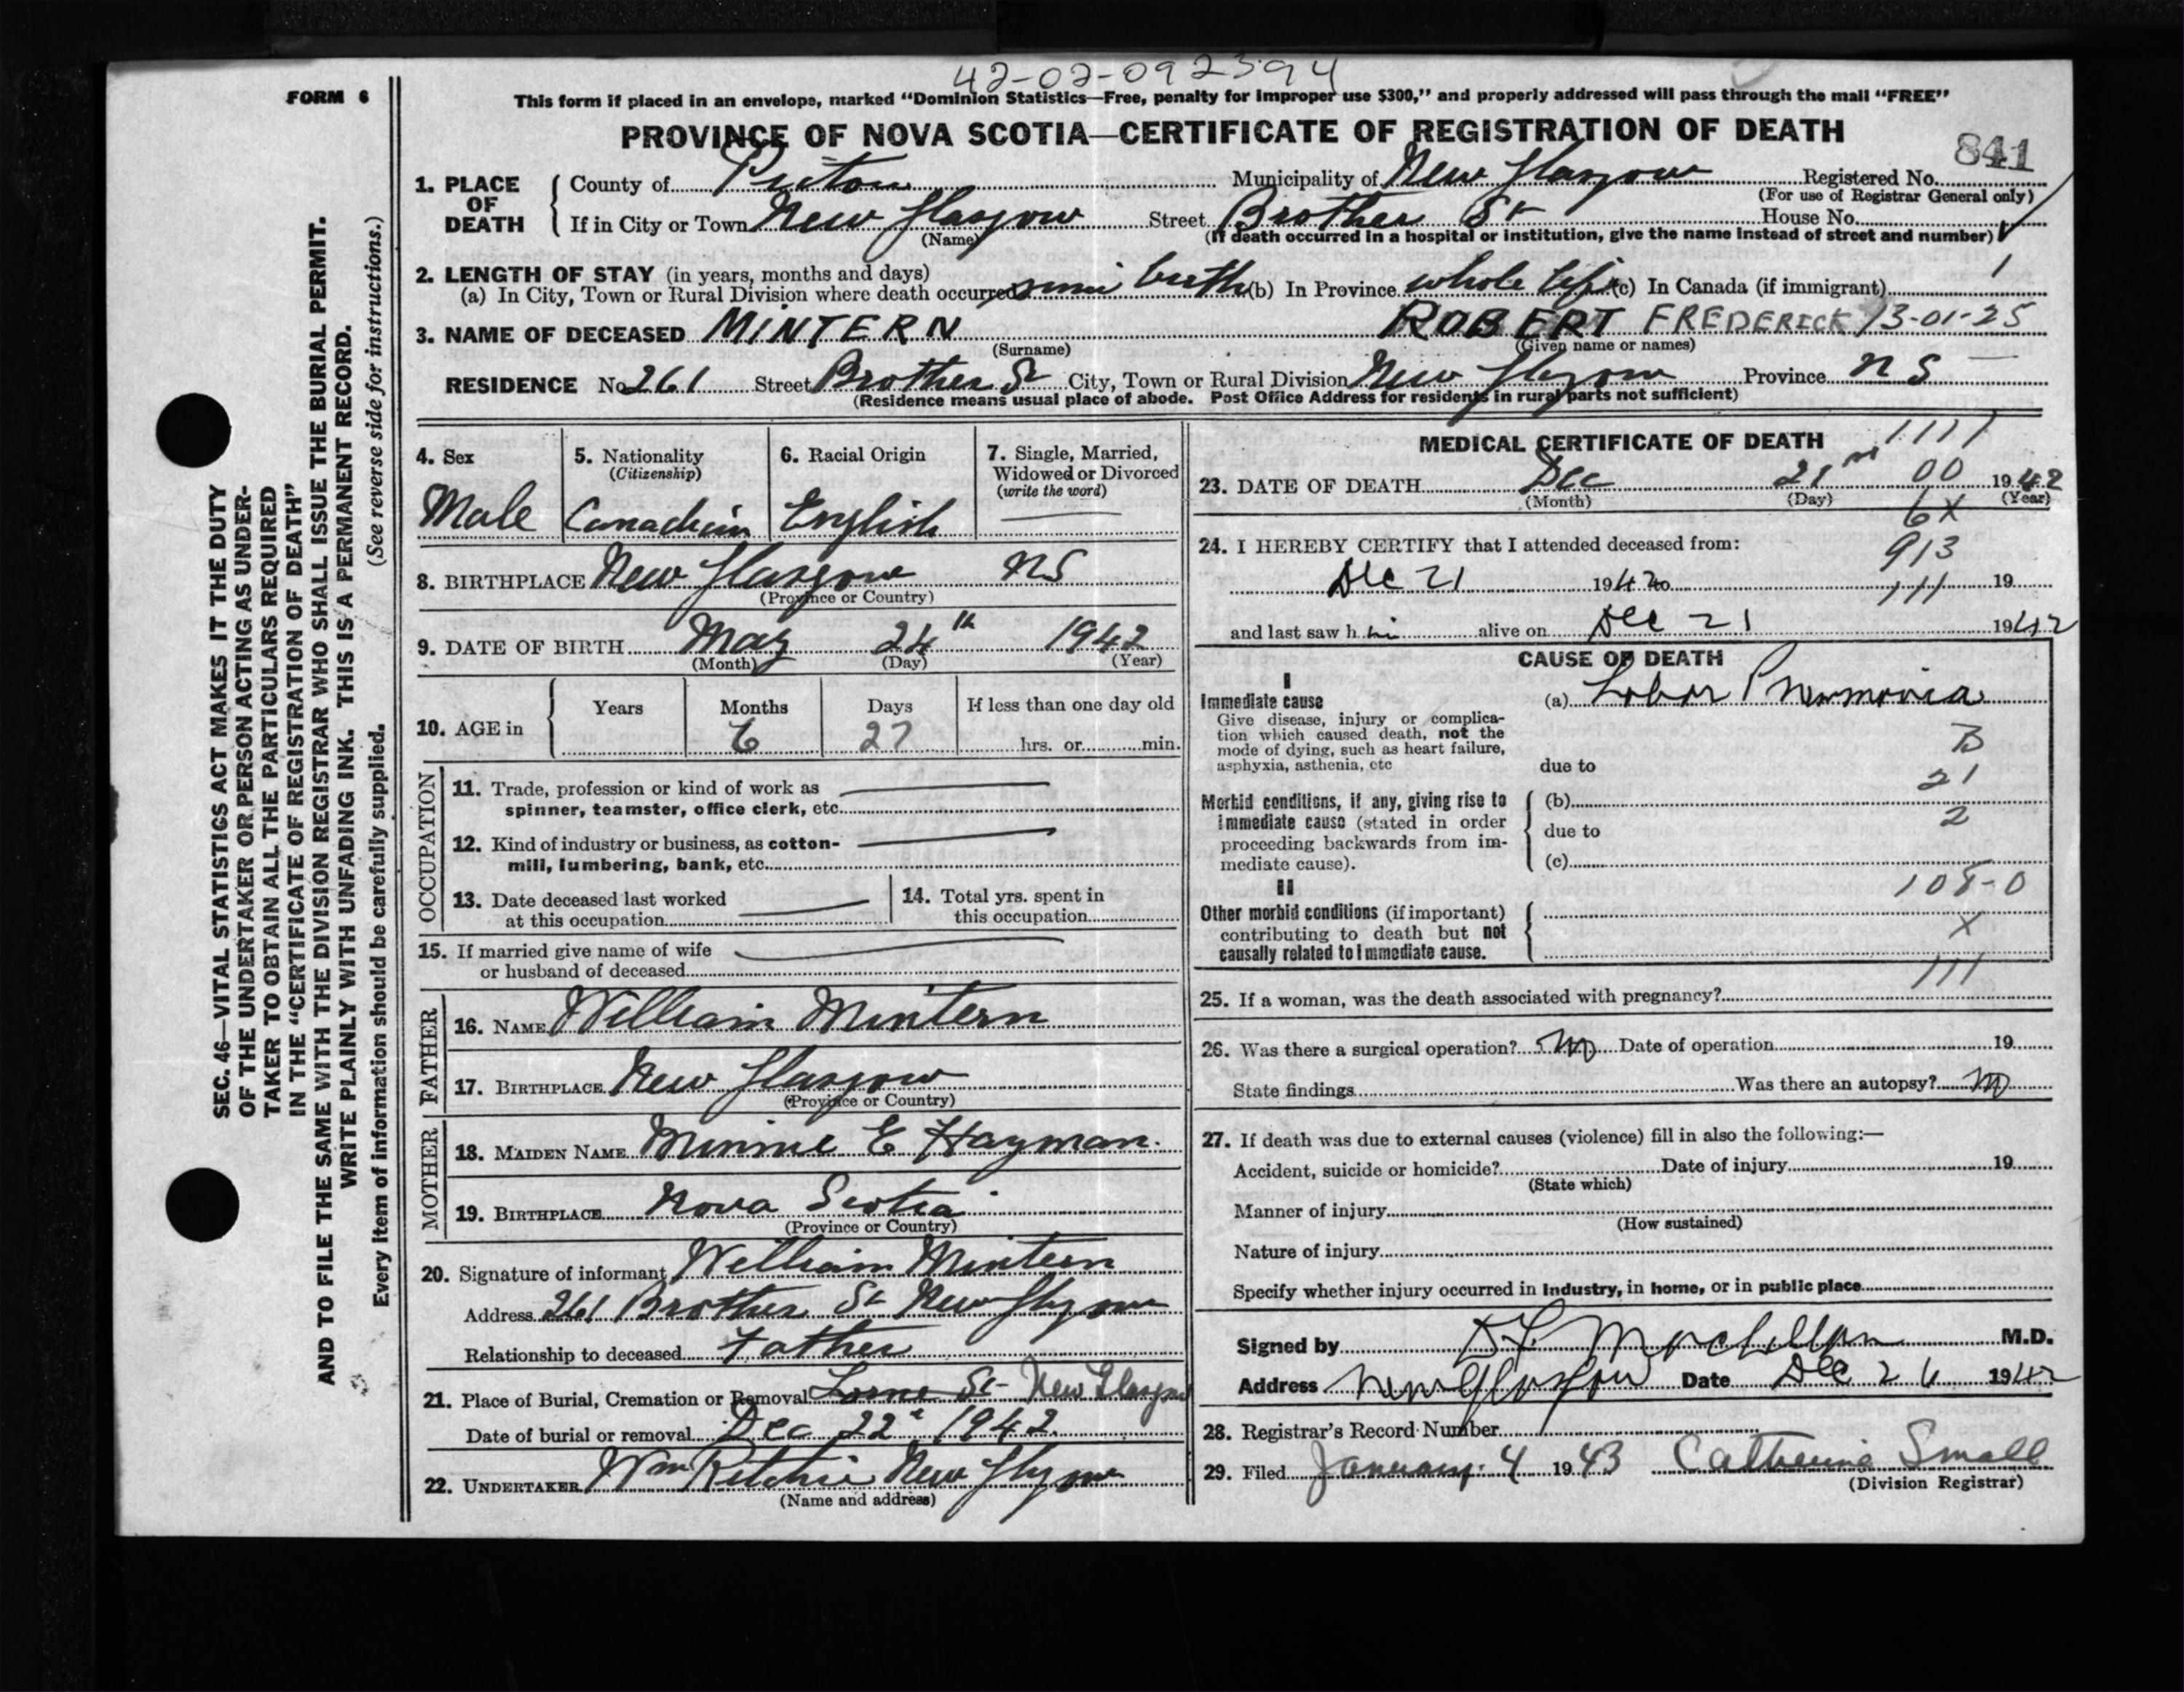 42-02-092394
FORM 6
This form if placed in an envelope, marked "Dominion Statistics—Free, penalty for improper use $300," and properly addressed will pass through the mail "FREE"
PROVINCE OF NOVA SCOTIA—CERTIFICATE OF REGISTRATION OF DEATH
841
1. PLACE OF DEATH County of Pictou Municipality of New Glasgow Registered No.
(For use of Registrar General only)
If in City or Town New Glasgow Street Brother St House No.
(Name) (If death occurred in a hospital or institution, give the name instead of street and number)
2. LENGTH OF STAY (in years, months and days)
(a) In City, Town or Rural Division where death occurred birth (b) In Province whole life (c) In Canada (if immigrant)
3. NAME OF DECEASED MINTERN ROBERT FREDERICK 13-01-25
(Surname) (Given name or names)
RESIDENCE No. 261 Street Brother St City, Town or Rural Division New Glasgow Province N S
(Residence means usual place of abode. Post Office Address for residents in rural parts not sufficient)
SEC. 46—VITAL STATISTICS ACT MAKES IT THE DUTY
OF THE UNDERTAKER OR PERSON ACTING AS UNDER-
TAKER TO OBTAIN ALL THE PARTICULARS REQUIRED
IN THE "CERTIFICATE OF REGISTRATION OF DEATH"
AND TO FILE THE SAME WITH THE DIVISION REGISTRAR WHO SHALL ISSUE THE BURIAL PERMIT.
WRITE PLAINLY WITH UNFADING INK. THIS IS A PERMANENT RECORD.
Every item of information should be carefully supplied. (See reverse side for instructions.)
4. Sex
Male
5. Nationality
(Citizenship)
Canadian
6. Racial Origin
English
7. Single, Married,
Widowed or Divorced
(write the word)
8. BIRTHPLACE New Glasgow NS
(Province or Country)
9. DATE OF BIRTH May 24th 1942
(Month) (Day) (Year)
10. AGE in Years Months Days If less than one day old
6 27 hrs. or min.
OCCUPATION
11. Trade, profession or kind of work as
spinner, teamster, office clerk, etc.
12. Kind of industry or business, as cotton-
mill, lumbering, bank, etc.
13. Date deceased last worked
at this occupation
14. Total yrs. spent in
this occupation
15. If married give name of wife
or husband of deceased
FATHER
16. NAME William Mintern
17. BIRTHPLACE New Glasgow
(Province or Country)
MOTHER
18. MAIDEN NAME Minnie E Hayman.
19. BIRTHPLACE Nova Scotia
(Province or Country)
20. Signature of informant William Mintern
Address 261 Brother St New Glasgow
Relationship to deceased Father
21. Place of Burial, Cremation or Removal Lorne St New Glasgow
Date of burial or removal Dec 22 1942.
22. UNDERTAKER Wm Ritchie New Glasgow
(Name and address)
MEDICAL CERTIFICATE OF DEATH
1111
23. DATE OF DEATH Dec 21 00 1942
(Month) (Day) (Year)
6X
24. I HEREBY CERTIFY that I attended deceased from:
913
Dec 21 1942 to 19
111
and last saw h alive on Dec 21 1942
CAUSE OF DEATH
I
Immediate cause
Give disease, injury or complica-
tion which caused death, not the
mode of dying, such as heart failure,
asphyxia, asthenia, etc
(a) Lobar Pneumonia
B
due to
21
Morbid conditions, if any, giving rise to
immediate cause (stated in order
proceeding backwards from im-
mediate cause).
(b)
2
due to
(c)
108-0
II
Other morbid conditions (if important)
contributing to death but not
causally related to immediate cause.
X
111
25. If a woman, was the death associated with pregnancy?
26. Was there a surgical operation? no Date of operation 19
State findings Was there an autopsy? no
27. If death was due to external causes (violence) fill in also the following:—
Accident, suicide or homicide? Date of injury 19
(State which)
Manner of injury
(How sustained)
Nature of injury
Specify whether injury occurred in industry, in home, or in public place
Signed by MacLellan M.D.
Address New Glasgow Date Dec 26 1942
28. Registrar's Record Number
29. Filed January 4 1943 Catherine Small
(Division Registrar)